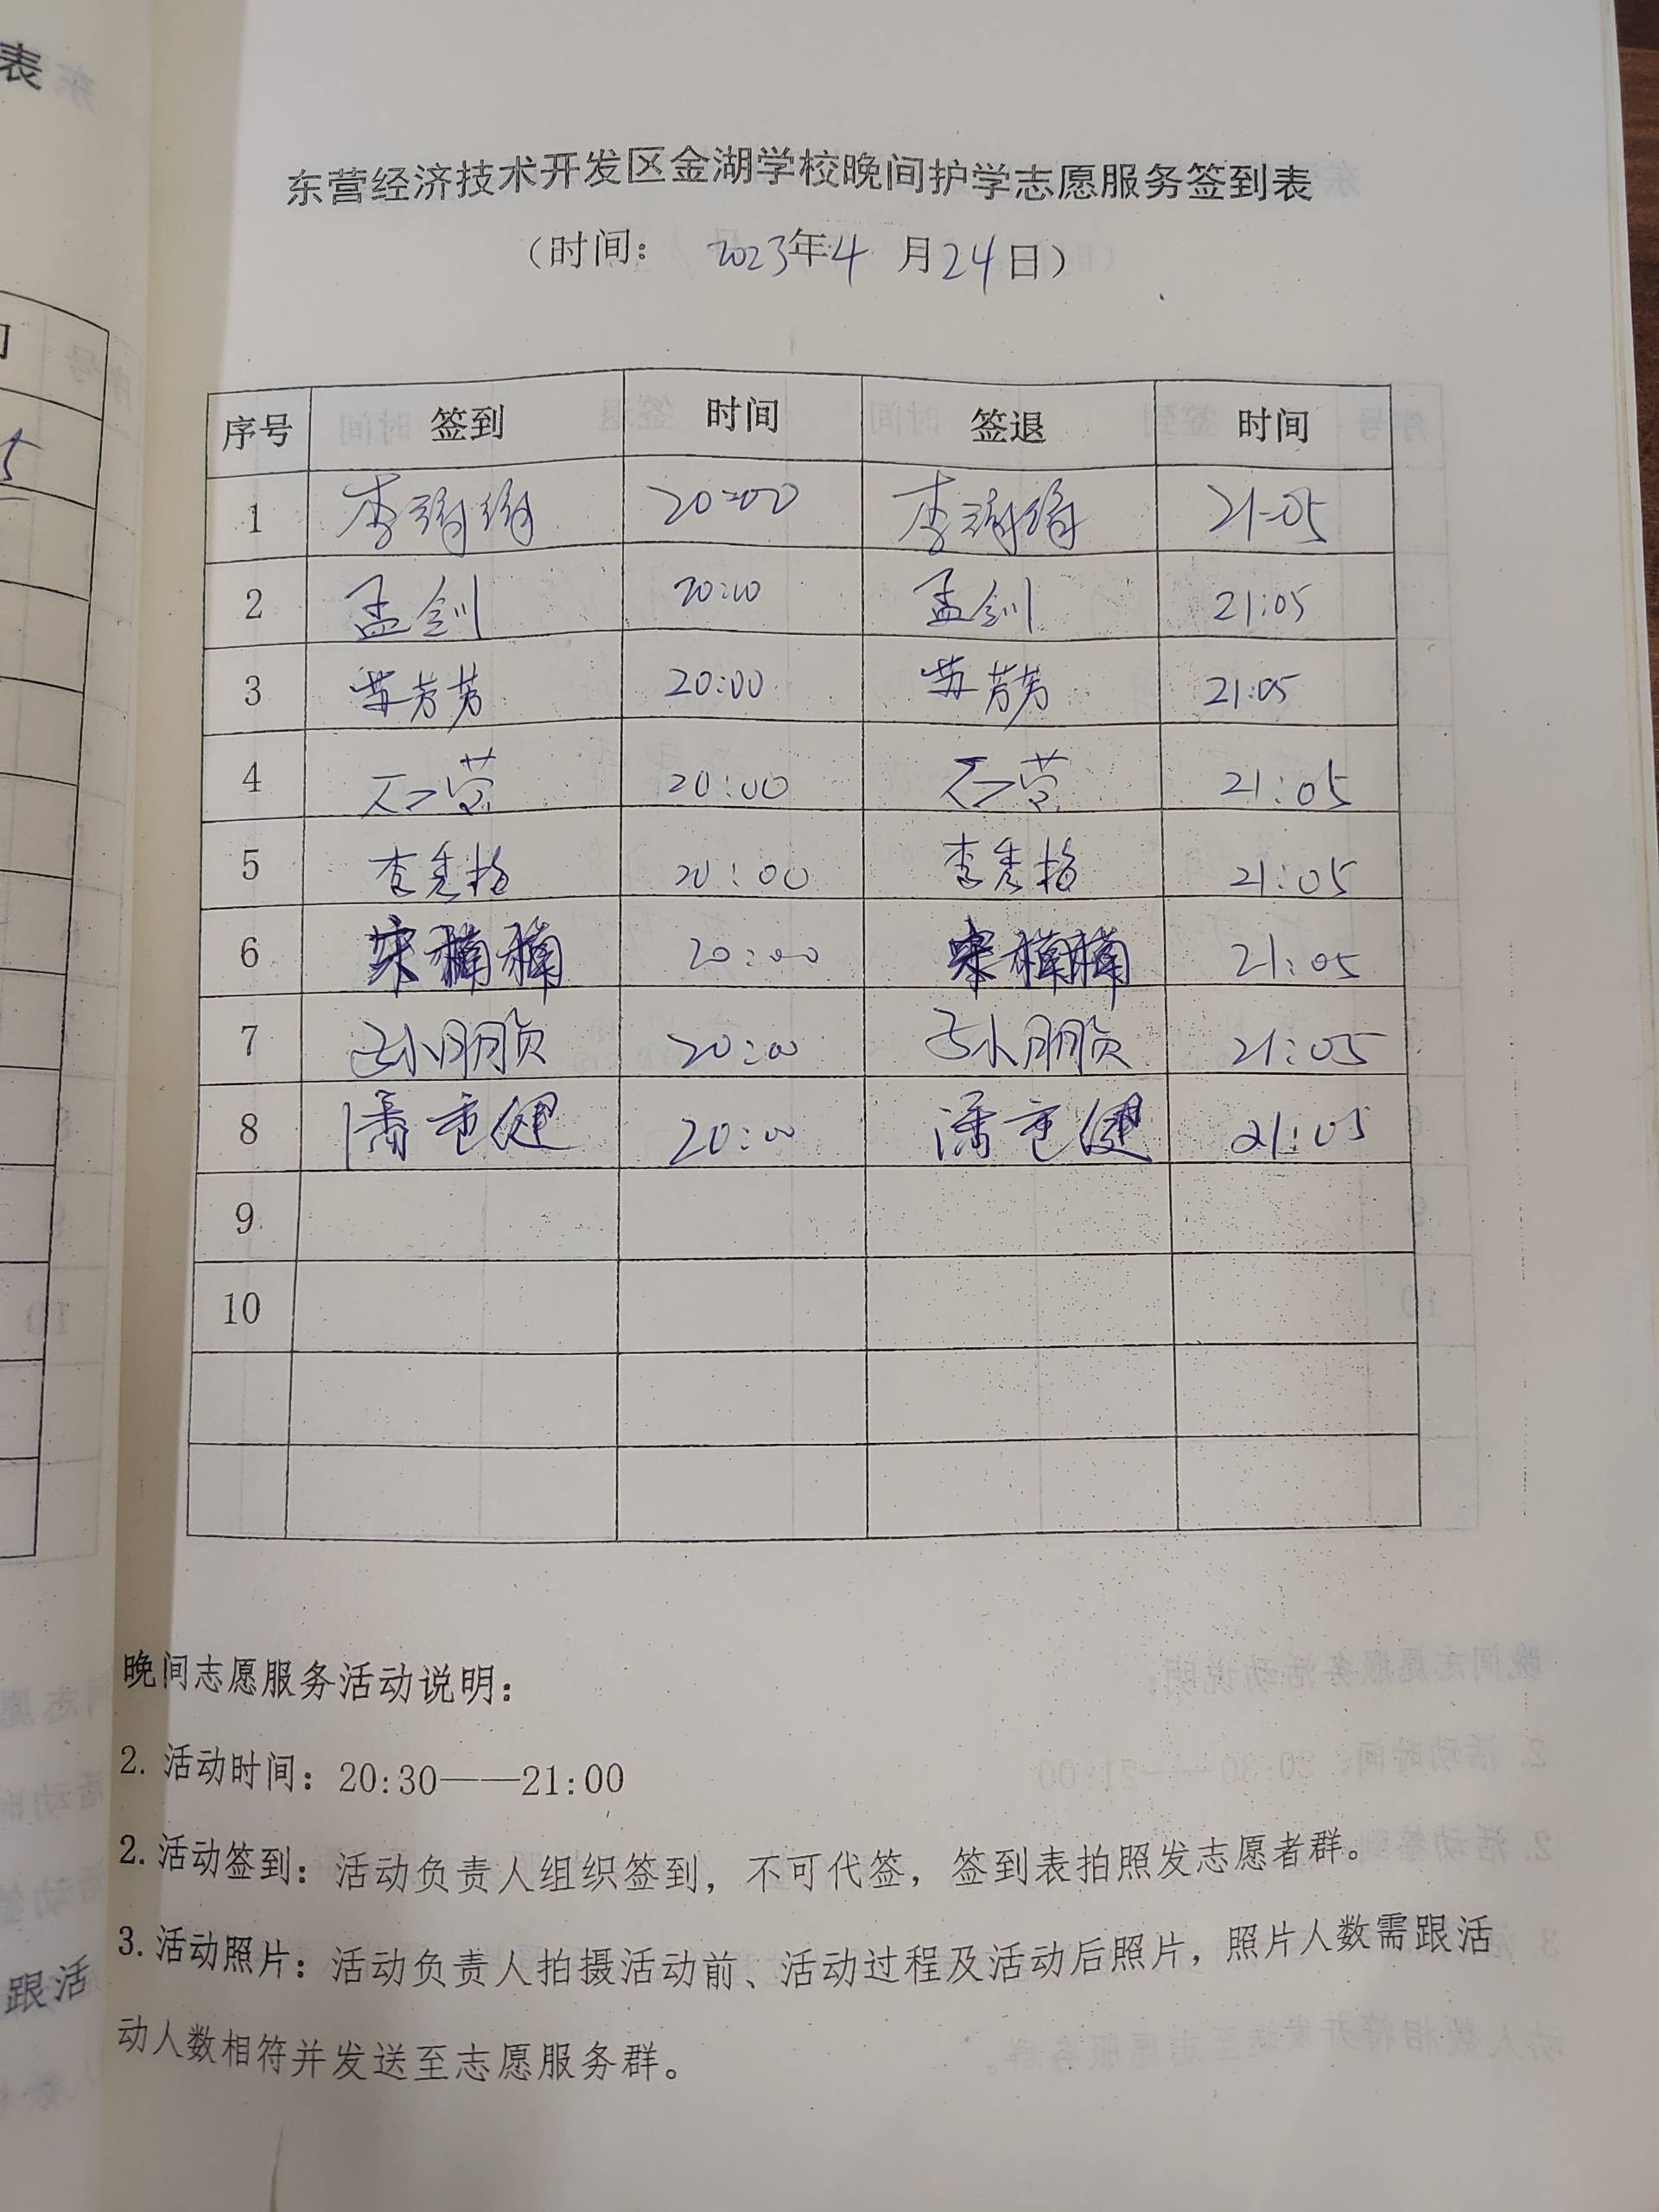 东营经济技术开发区金湖学校晚间护学志愿服务签到表
（时间： 2023年4 月24日）
序号 签到 时间 签退 时间
1 李 20:00 李 21:05
2 孟剑 20:00 孟剑 21:05
3 苏芳芳 20:00 苏芳芳 21:05
4 20:00 21:05
5 李秀梅 20:00 李秀梅 21:05
6 宋楠楠 20:00 宋楠楠 21:05
7 孙朋 20:00 孙朋 21:05
8 潘重健 20:00 潘重健 21:05
9
10
晚间志愿服务活动说明：
2. 活动时间：20:30——21:00
2. 活动签到：活动负责人组织签到，不可代签，签到表拍照发志愿者群。
3. 活动照片：活动负责人拍摄活动前、活动过程及活动后照片，照片人数需跟活
动人数相符并发送至志愿服务群。
表
跟活